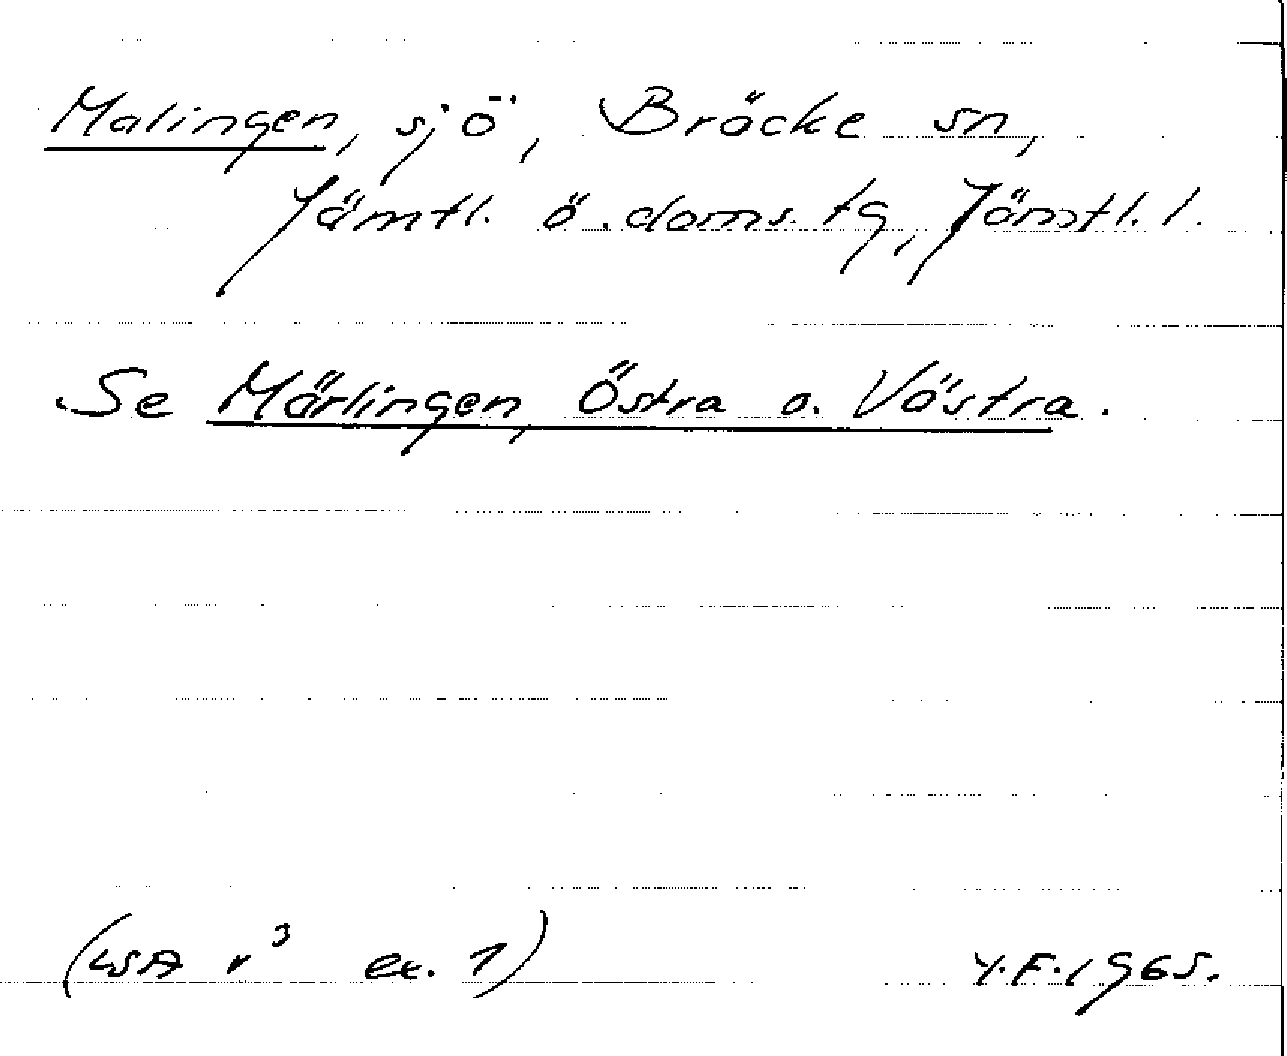 Malingen, sjö, Bräcke sn,
Jämtl. ö. doms. tg, Jämtl. l.
Se Märlingen, Östra o. Västra.
(LSA r³ ex. 1)
Y.F. 1965.